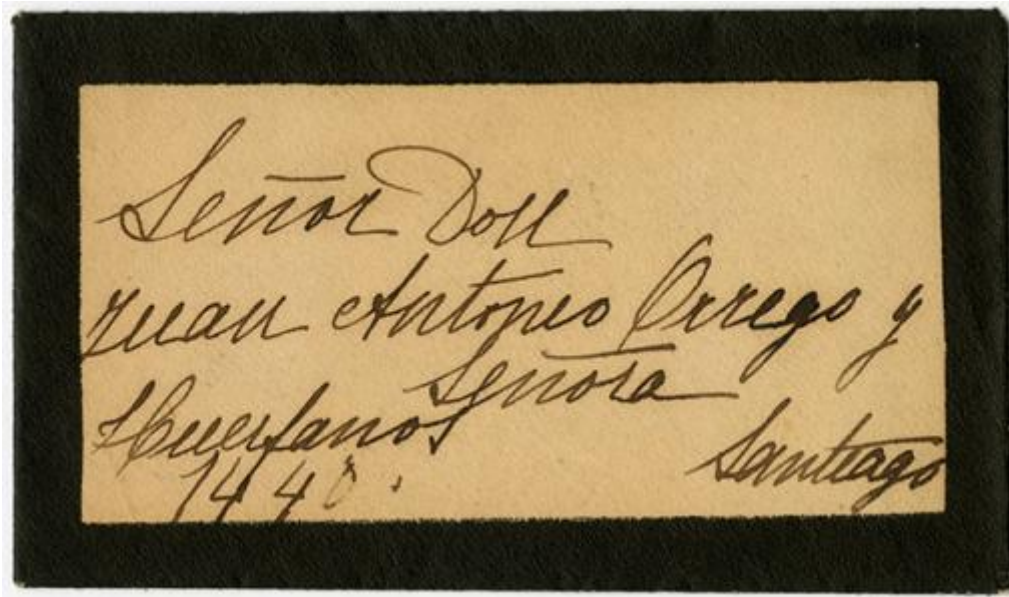 Señor Don
Juan Antonio Orrego y
Señora
Huerfanos
1440. Santiago